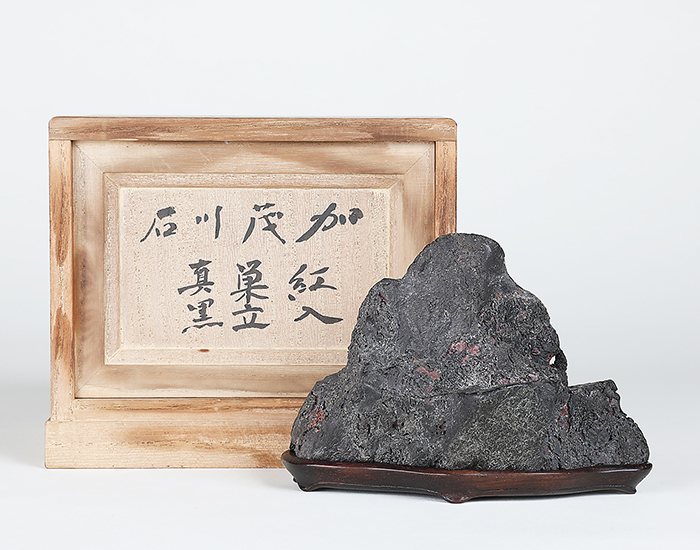 加茂川石
紅入
巣立
真黒